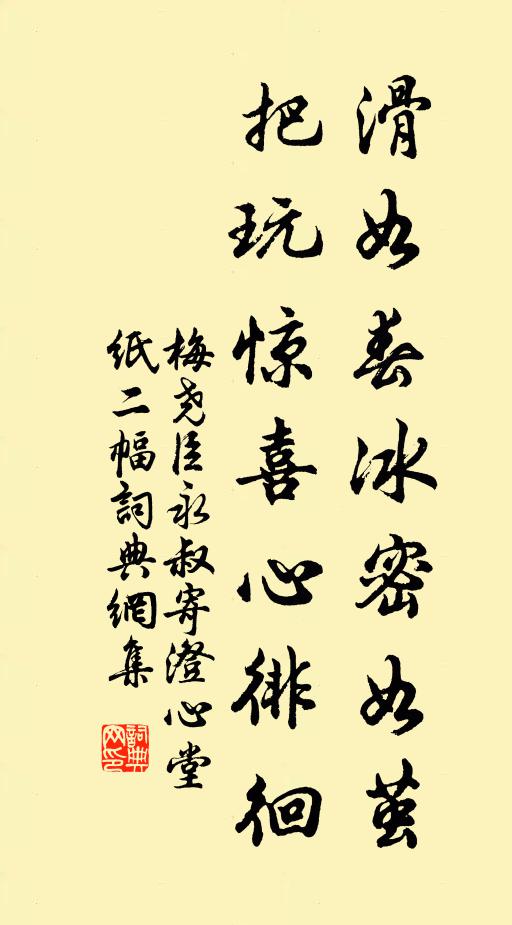 滑如春冰密如茧
把玩惊喜心徘徊
梅尧臣永叔寄澄心堂
纸二幅詞典網集
詞典
网印